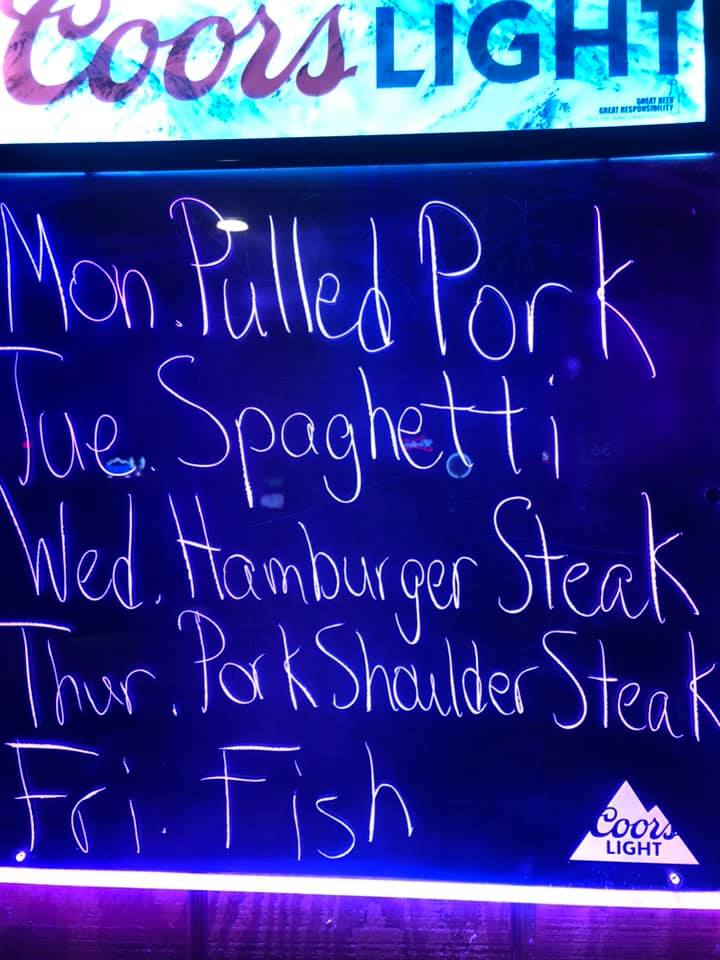 Coors LIGHT
GREAT BEER
GREAT RESPONSIBILITY
Mon. Pulled Pork
Tue. Spaghetti
Wed. Hamburger Steak
Thur. Pork Shoulder Steak
Fri. Fish
Coors
LIGHT